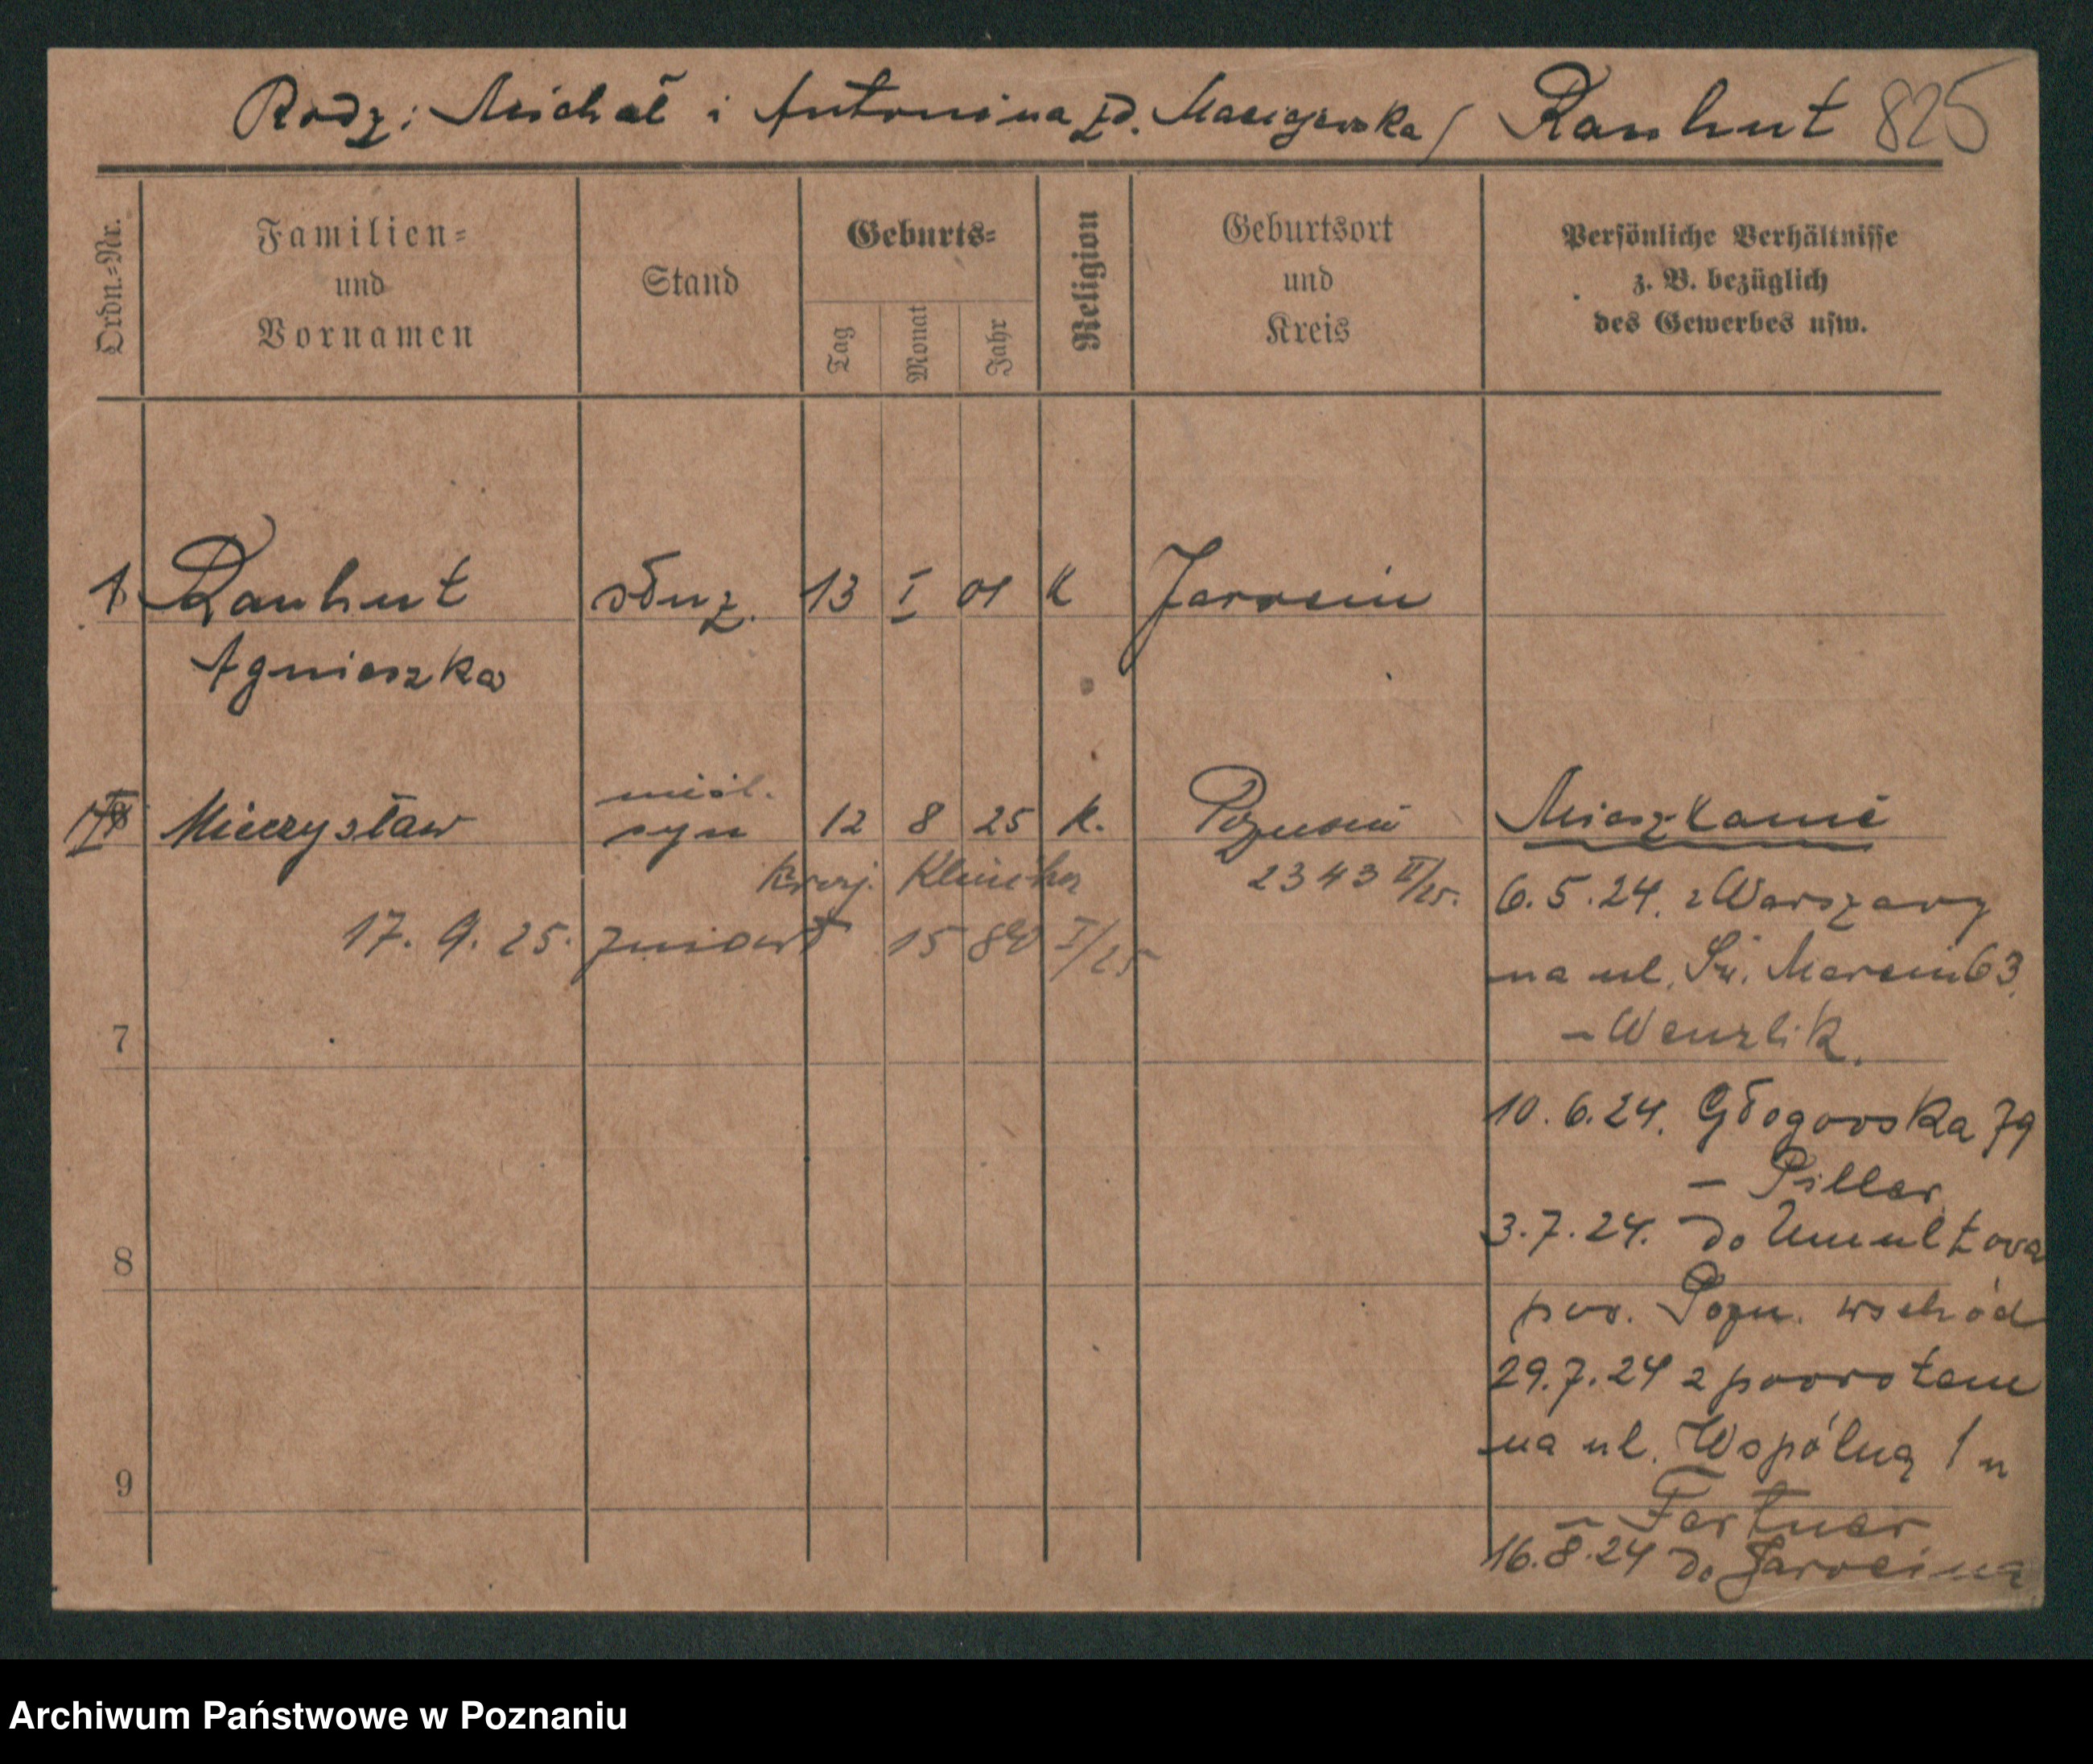 Rodz: Michał i Antonina zd. Maciejewska / Rauhut 825
Ordn.=Nr.
Familien=
und
Vornamen
Stand
Geburts=
Tag
Monat
Jahr
Religion
Geburtsort
und
Kreis
Persönliche Verhältnisse
z. B. bezüglich
des Gewerbes usw.
1 Rauhut służ. 13 I 01 K Jarocin
Agnieszka
nieśl.
Mieczysław syn 12 8 25 k. Poznań
Kraj. Klinika 2343 II/25.
17. 9. 25. zmarł 15 I/25
Mieszkanie
6.5.24. z Warszawy
na ul. Św. Marcin 63.
– Wenzlik.
7
10.6.24. Głogowska 79
– Piller
3.7.24. do Umultowa
8
pow. Pozn. wschód
29.7.24 z powrotem
na ul. Wspólną 1 u
9
– Fertner
16.8.24 do Jarocina
Archiwum Państwowe w Poznaniu